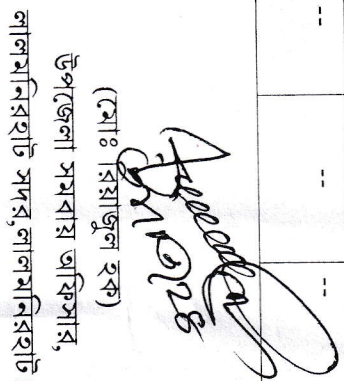 --
--
(মোঃ রিয়াজুল হক)
উপজেলা সমবায় অফিসার,
লালমনিরহাট সদর,লালমনিরহাট